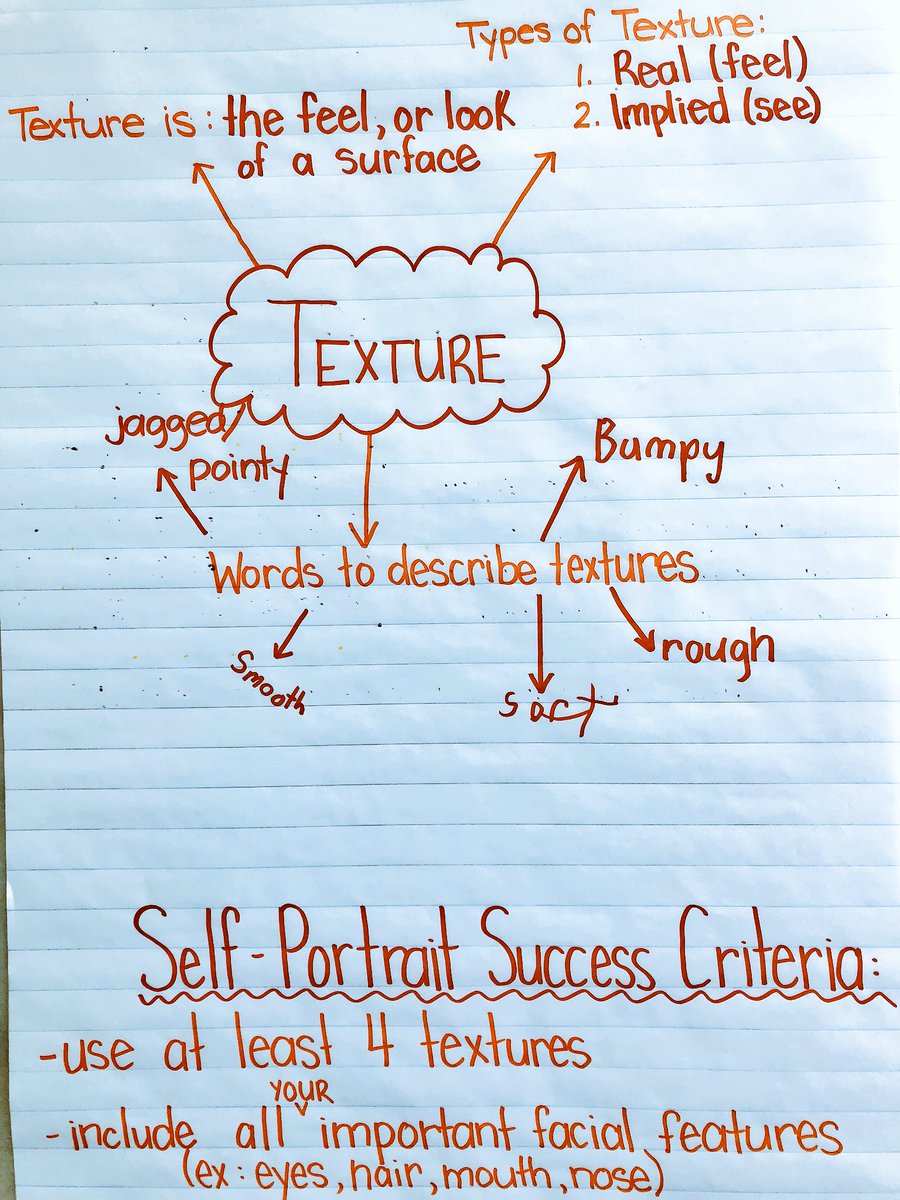 Types of Texture:
1. Real (feel)
2. Implied (see)
Texture is: the feel, or look
of a surface
TEXTURE
jagged/
pointy
Bumpy
Words to describe textures
smooth
rough
Self-Portrait Success Criteria:
-use at least 4 textures
YOUR
-include all important facial features
(ex: eyes, hair, mouth, nose)